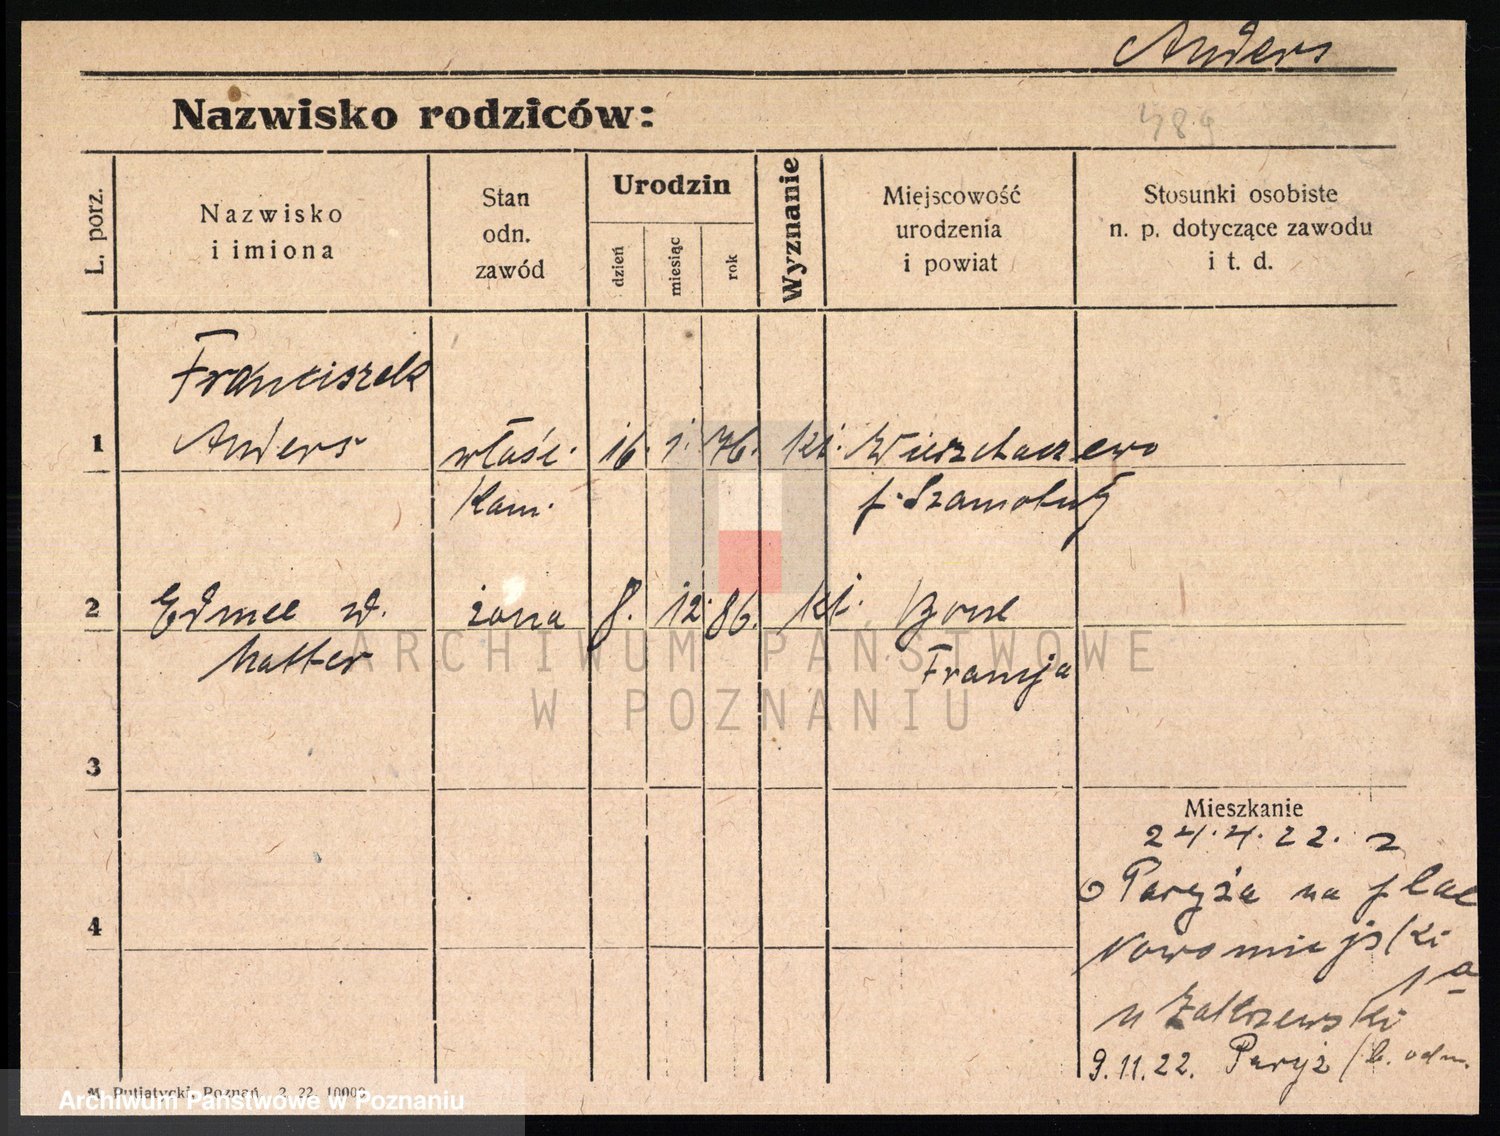 Anders
Nazwisko rodziców:
489
L. porz.
Nazwisko
i imiona
Stan
odn.
zawód
Urodzin
dzień
miesiąc
rok
Wyznanie
Miejscowość
urodzenia
i powiat
Stosunki osobiste
n. p. dotyczące zawodu
i t. d.
Franciszek
1 Anders właśc. 16. 1. 76. kt. Wierzchaczewo
Kam. p. Szamotuły
2 Edmee zd. żona 8. 12. 86. kt.
Matter Francja
3
Mieszkanie
24.4.22. z
Paryża na plac
4 Nowomiejski
1a
u
9.11.22. Paryż
M. Putiatycki, Poznań 2. 22. 10000
ARCHIWUM PAŃSTWOWE
W POZNANIU
Archiwum Państwowe w Poznaniu